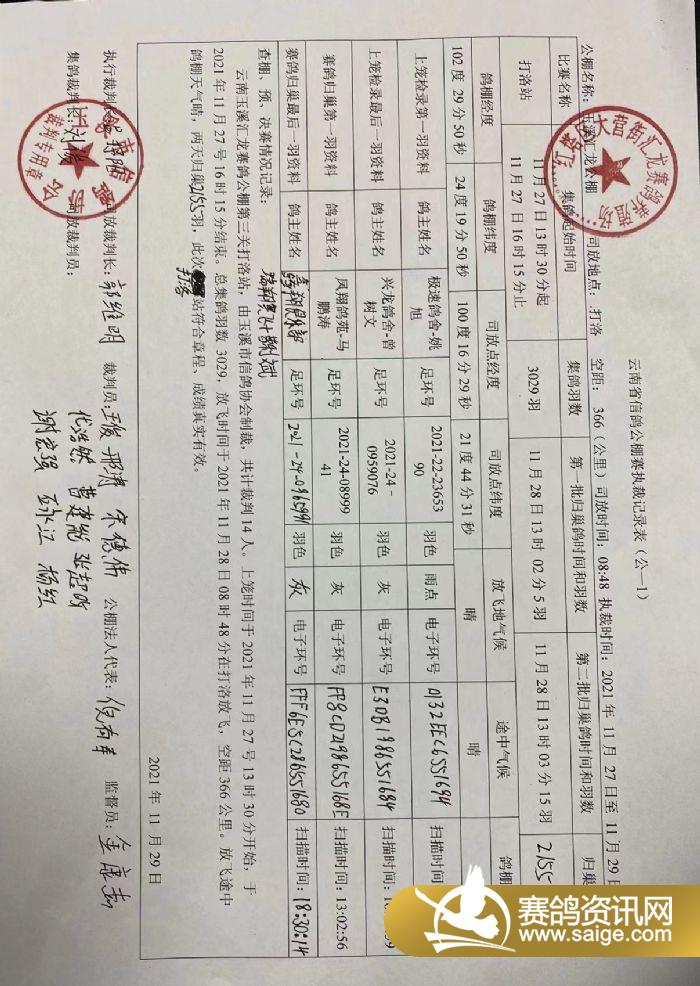 云南省信鸽公棚赛执裁记录表（公—1）
公棚名称：玉溪汇龙公棚 司放地点：打洛 空距：366（公里）司放时间：08:48 执裁时间：2021 年 11 月 27 日至 11 月 29 日
比赛名称 集鸽起始时间 集鸽羽数 第一批归巢鸽时间和羽数 第二批归巢鸽时间和羽数 归巢
打洛站 11 月 27 日 13 时 30 分起 11 月 27 日 16 时 15 分止 3029 羽 11 月 28 日 13 时 02 分 5 羽 11 月 28 日 13 时 03 分 15 羽 2155
鸽棚经度 鸽棚纬度 司放点经度 司放点纬度 放飞地气候 途中气候 鸽棚
102 度 29 分 50 秒 24 度 19 分 50 秒 100 度 16 分 29 秒 21 度 44 分 31 秒 晴 晴
上笼检录第一羽资料 鸽主姓名 极速鸽舍-姚旭 足环号 2021-22-2365390 羽色 雨点 电子环号 扫描时间：
上笼检录最后一羽资料 鸽主姓名 兴龙鸽舍-曾树文 足环号 2021-24-0959076 羽色 灰 电子环号 E30B1986551684 扫描时间：
赛鸽归巢第一羽资料 鸽主姓名 凤翔鸽苑-马鹏涛 足环号 2021-24-0899941 羽色 灰 电子环号 扫描时间：13:02:56
赛鸽归巢最后一羽资料 鸽主姓名 足环号 2021-24-0965991 羽色 灰 电子环号 FFF6E5C286551680 扫描时间：18:30:14
查棚、预、决赛情况记录：
云南玉溪汇龙赛鸽公棚第三关打洛站，由玉溪市信鸽协会制裁，共计裁判 14 人。上笼时间于 2021 年 11 月 27 号 13 时 30 分开始，于
2021 年 11 月 27 号 16 时 15 分结束。总集鸽羽数 3029，放飞时间于 2021 年 11 月 28 日 08 时 48 分在打洛放飞，空距 366 公里。放飞途中
鸽棚天气晴，两天归巢2155羽，此次打洛站符合章程，成绩真实有效。
2021 年 11 月 29 日
执行裁判长： 司放裁判长：郭维明 裁判员： 宋德伟 公棚法人代表：倪有车 监督员：
集鸽裁判长：刘 司放裁判员： 谢宏强 杨红
裁判专用章
大营街汇龙赛鸽养殖场
赛鸽资讯网
www.saige.com